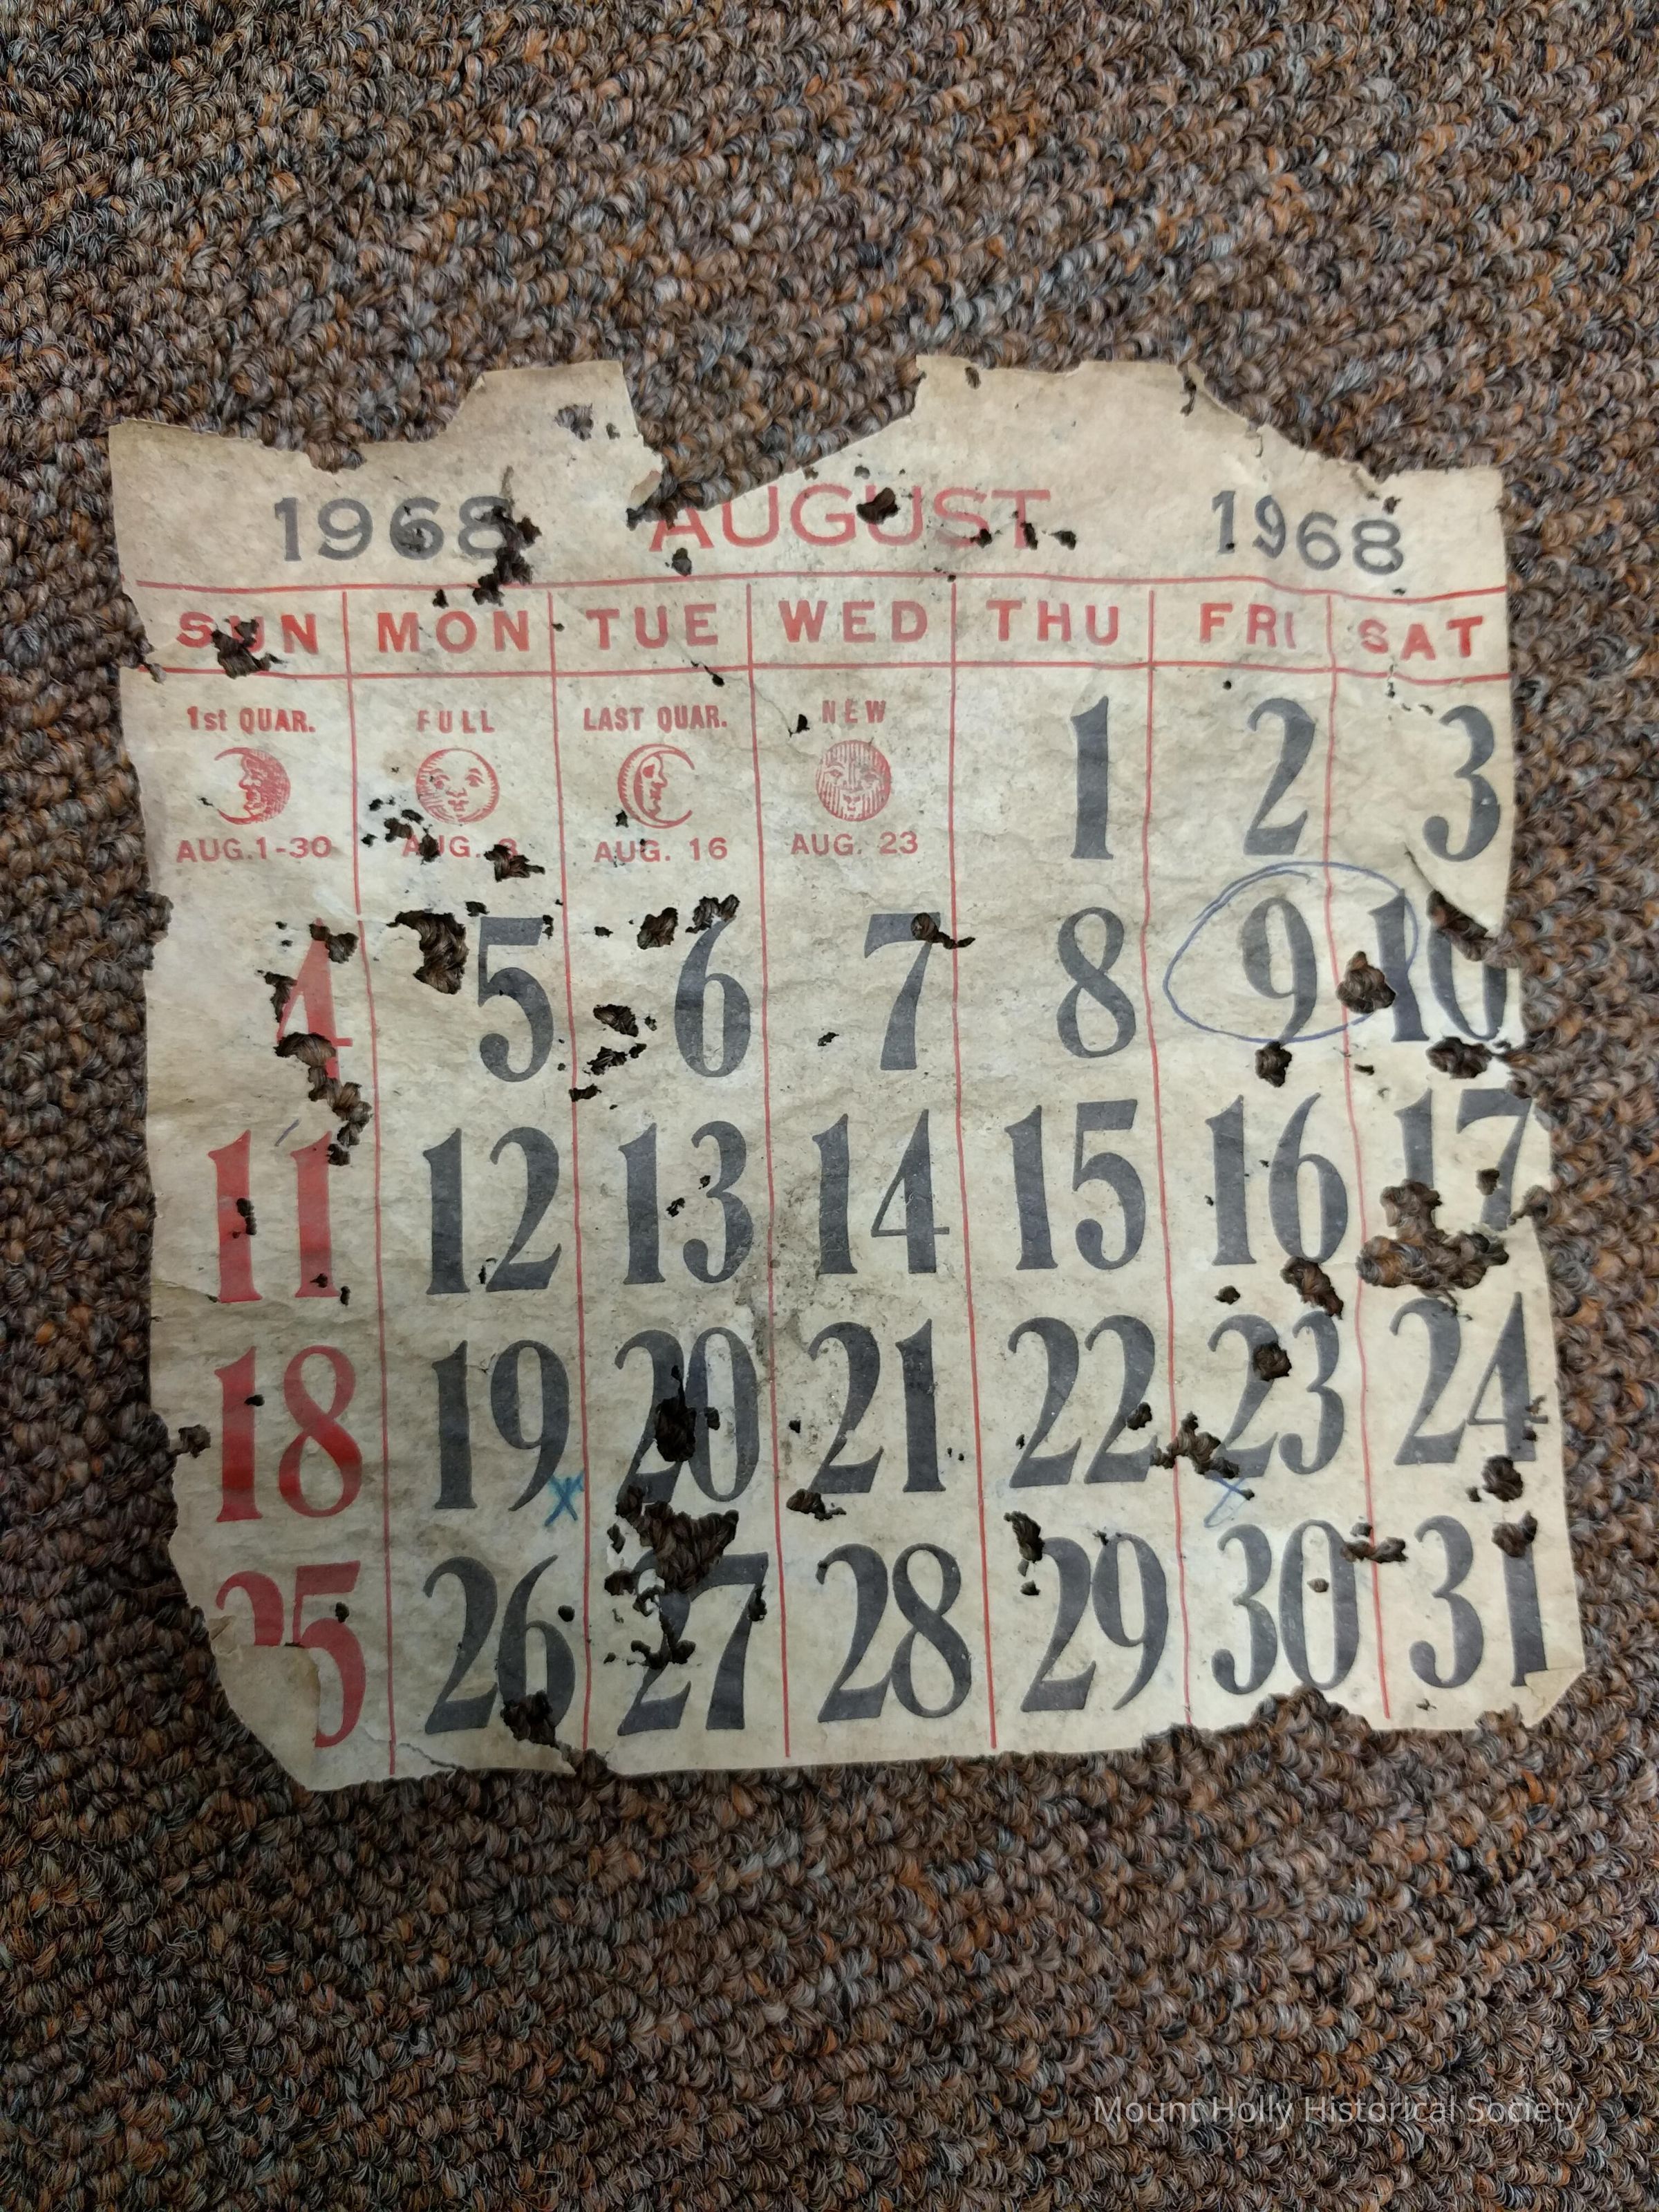 1968 AUGUST 1968
SUN MON TUE WED THU FRI SAT
1st QUAR. FULL LAST QUAR. NEW 1 2 3
AUG.1-30 AUG. 8 AUG. 16 AUG. 23
4 5 6 7 8 9 10
11 12 13 14 15 16 17
18 19 20 21 22 23 24
x x
25 26 27 28 29 30 31
Mount Holly Historical Society